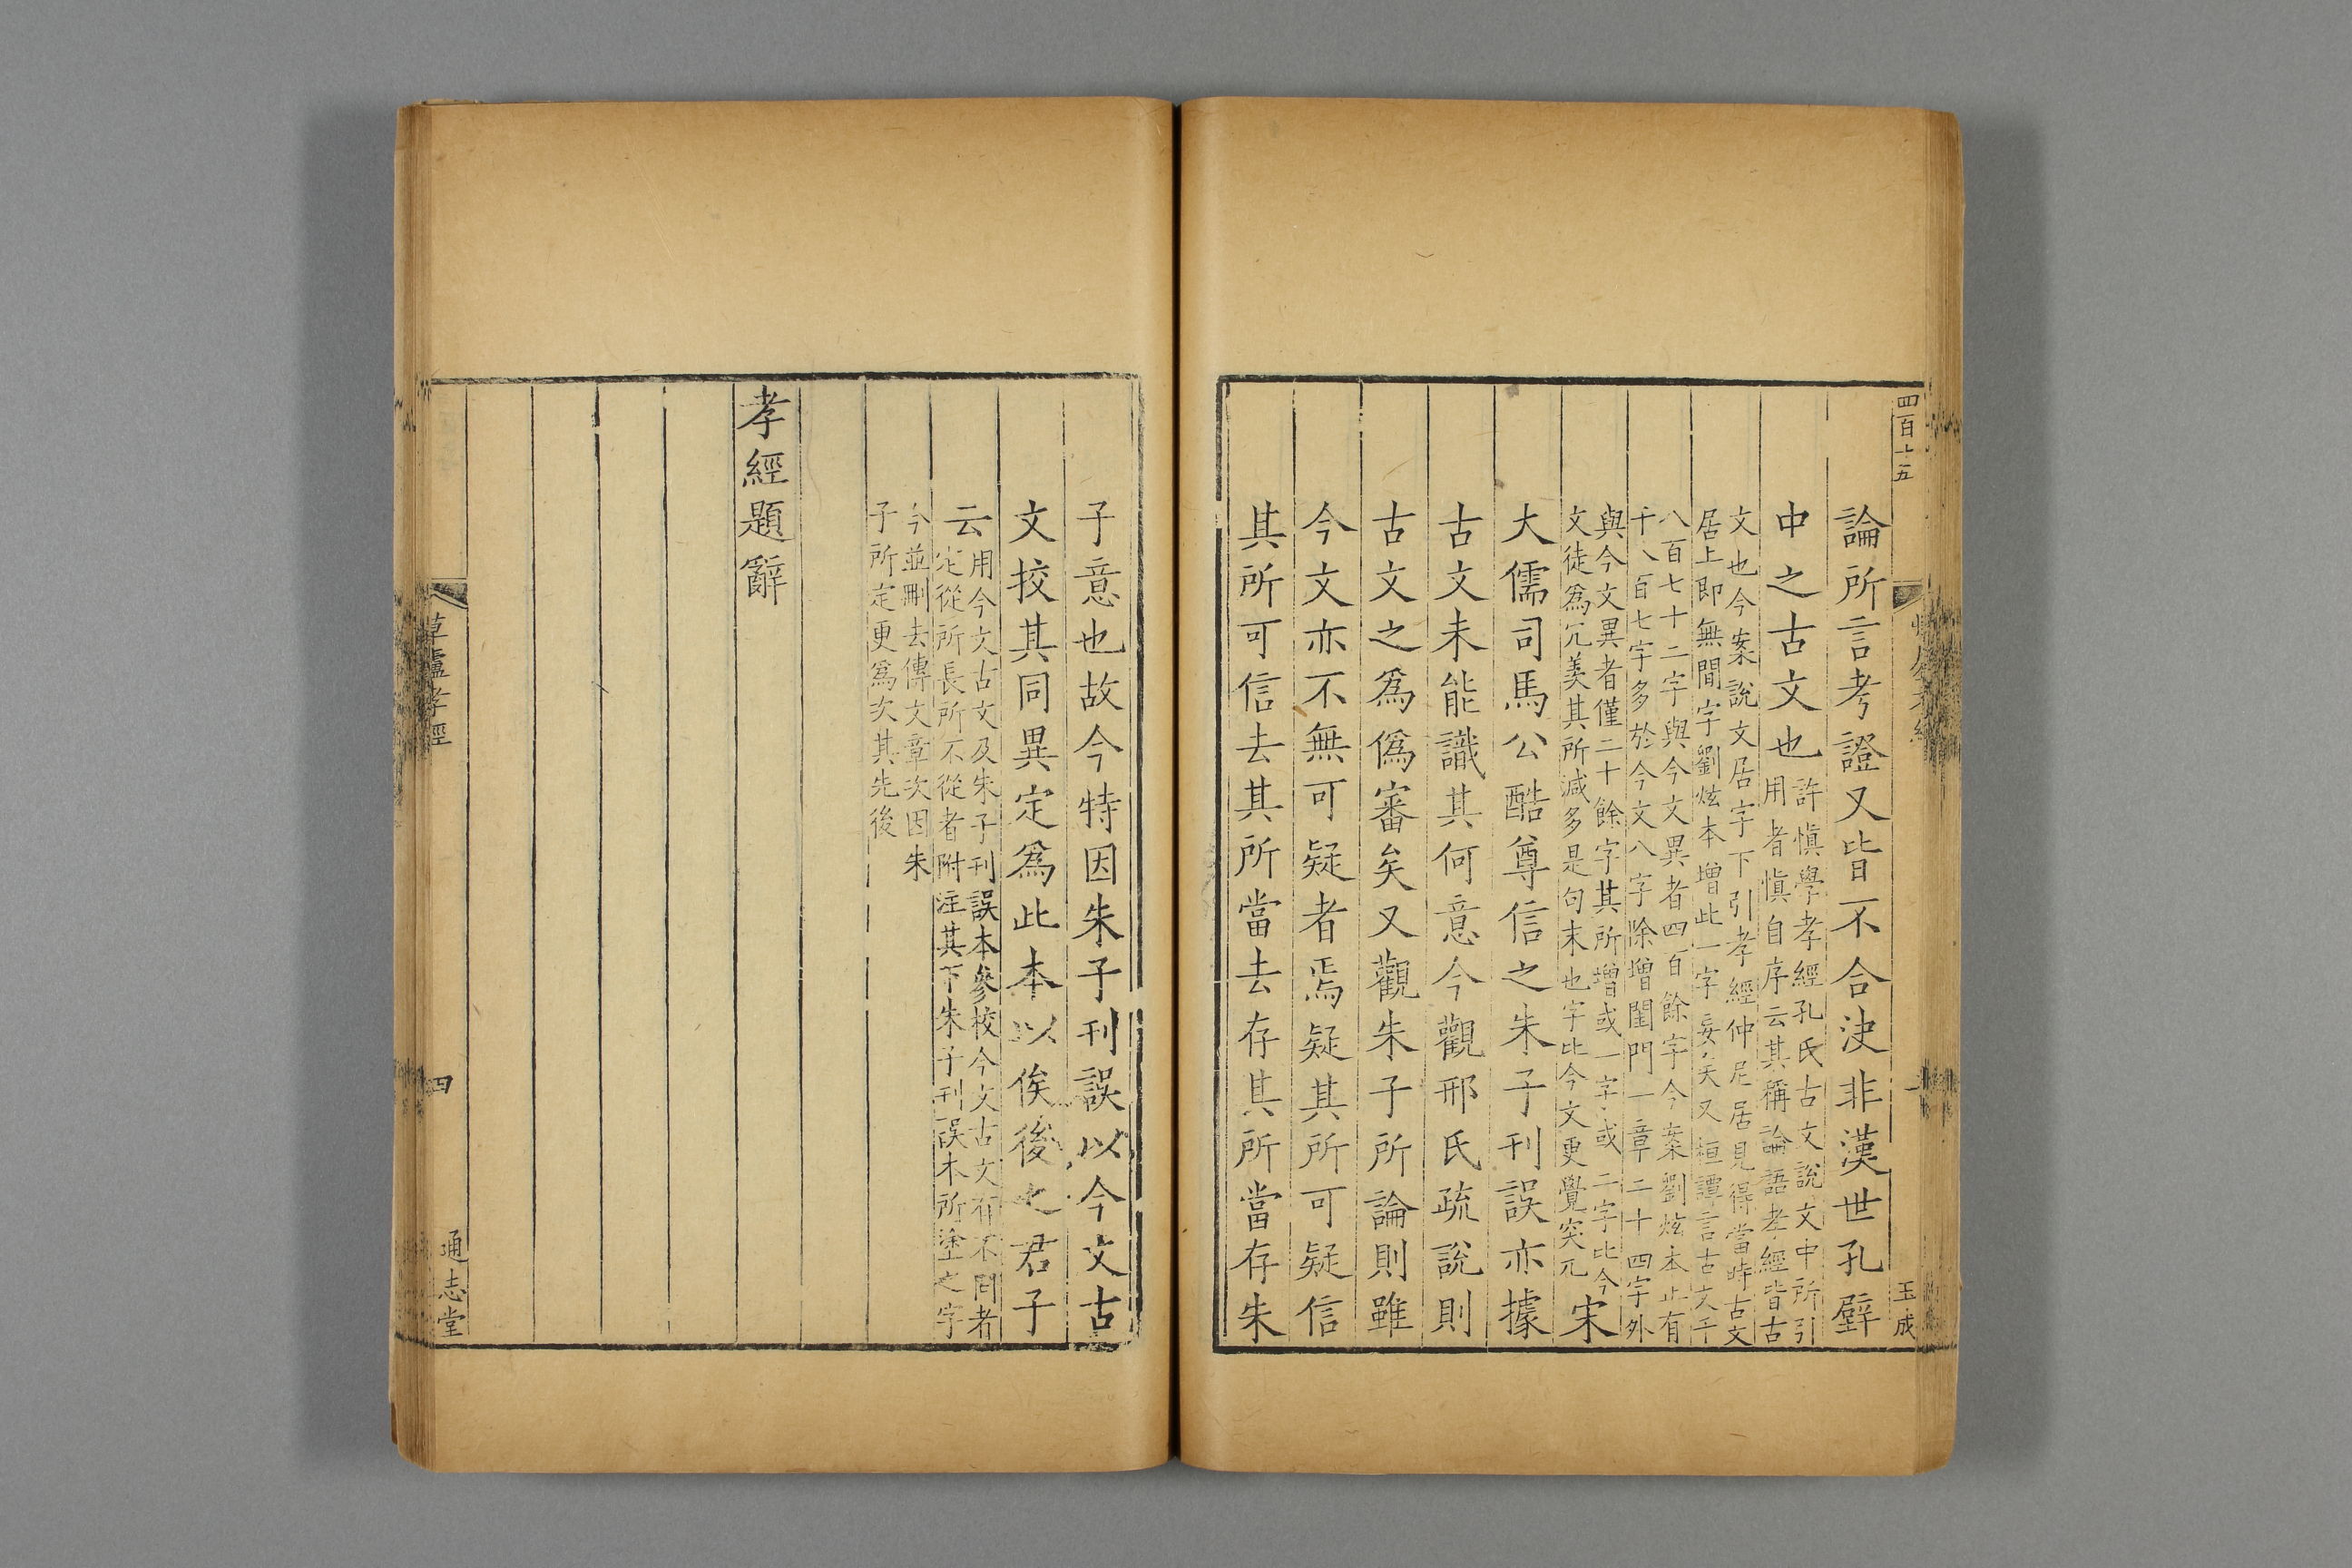 四百十五
論所言考證又皆不合决非漢世孔壁
中之古文也許慎學孝經孔氏古文說文中所引
用者慎自序云其稱論語孝經皆古
文也今案說文居字下引孝經仲尼居見得當時古文
居上即無閒字劉炫本增此一字妄矣又桓譚言古文千
八百七十二字與今文異者四百餘字今案劉炫本止有
千八百七字多於今文八字除增閨門一章二十四字外
與今文異者僅二十餘字其所增或一字或二字比今
文徒爲冗羙其所減多是句末也字比今文更覺突兀宋
大儒司馬公酷尊信之朱子刊誤亦據
古文未能識其何意今觀邢氏疏說則
古文之爲僞審矣又觀朱子所論則雖
今文亦不無可疑者焉疑其所可疑信
其所可信去其所當去存其所當存朱
玉成
子意也故今特因朱子刊誤以今文古
文挍其同異定爲此本以俟後之君子
云用今文古文及朱子刊誤本參校今文古文有不同者
定從所長所不從者附注其下朱子刊誤本所塗之字
今並刪去傳文章次因朱
子所定更爲次其先後
孝經題辭
草廬孝經
四
通志堂